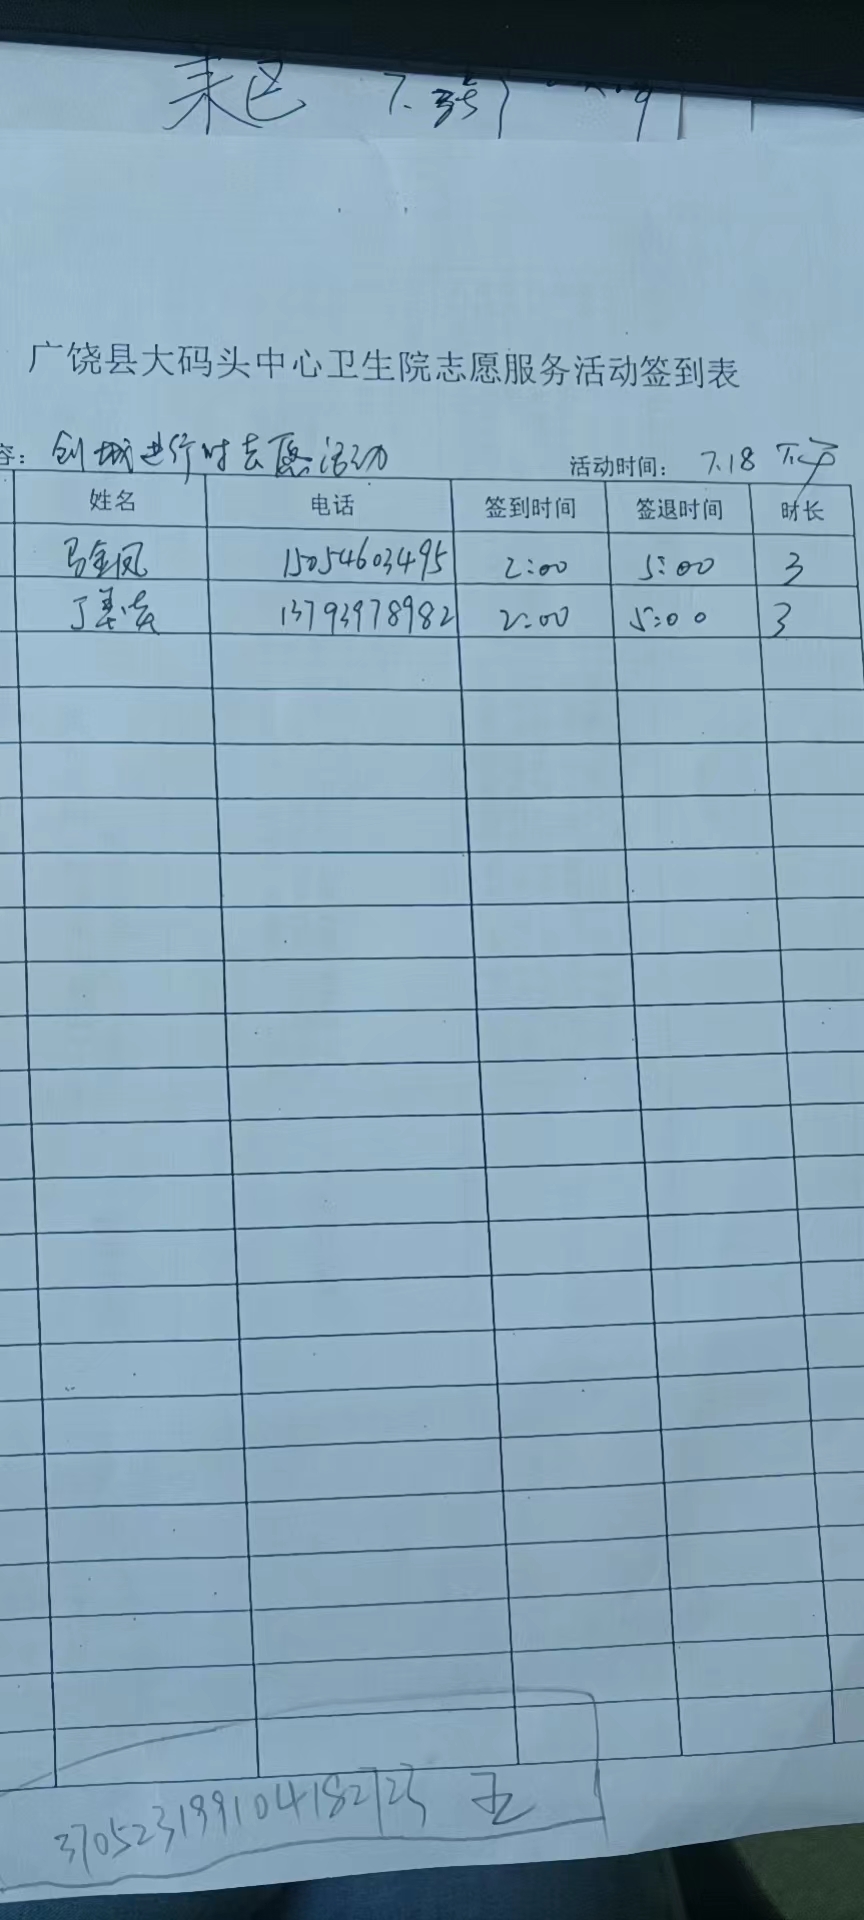 广饶县大码头中心卫生院志愿服务活动签到表
容: 创城进行时志愿活动 活动时间: 7.18 下午
姓名 电话 签到时间 签退时间 时长
马金凤 15054603495 2:00 5:00 3
丁 13793978982 2:00 5:00 3
370523199104182723 王